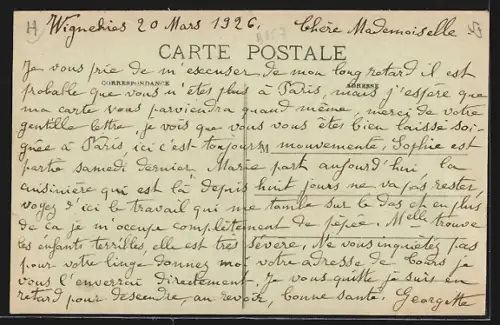 H Wignehies 20 Mars 1926. Chère Mademoiselle
CARTE POSTALE
CORRESPONDANCE ADRESSE
Je vous prie de m'excuser de mon long retard il est
probable que vous n'êtes plus à Paris, mais j'espère que
ma carte vous parviendra quand même, merci de votre
gentille lettre, je vois que vous vous êtes bien laissé soi-
gnée à Paris, ici c'est toujours mouvementé, Sophie est
partie samedi dernier, Marie part aujourd'hui la
cuisinière qui est là depuis huit jours ne va pas rester,
voyez d'ici le travail qui me tombe sur le dos et en plus
de ça je m'occupe complètement de pépée. Melle trouve
les enfants terribles, elle est très sévère. Ne vous inquiétez pas
pour votre linge donnez moi votre adresse de je
vous l'enverrai directement. Je vous quitte je suis en
retard pour descendre, au revoir, bonne santé. Georgette